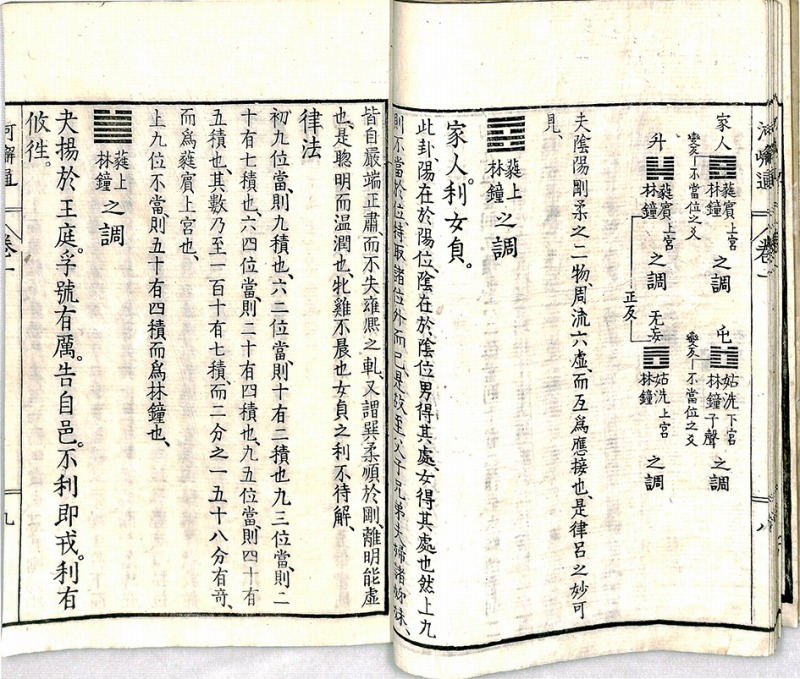 解通 卷一 八
家人
蕤賓上宮
林鐘
之調
屯
姑洗下宮
林鐘子聲
之調
變爻
不當位之爻
變爻
不當位之爻
升
蕤賓上宮
林鐘
之調
无妄
姑洗上宮
林鐘
之調
正反
夫陰陽剛柔之二物、周流六虛、而互爲應接也、是律呂之妙可
見、
蕤上
林鐘
之調
家人。利女貞。
此卦、陽在於陽位、陰在於陰位、男得其處、女得其處也、然上九
則不當於位、持取諸位外而已、是故至父子兄弟夫婦諸姊妹、
皆自嚴端正肅、而不失雍熙之軋、又謂巽柔順於剛、離明能虛
也、是聰明而温潤也、牝雞不晨也、女貞之利不待解、
律法
初九位當、則九積也、六二位當、則十有二積也、九三位當、則二
十有七積也、六四位當、則二十有四積也、九五位當、則四十有
五積也、其數乃至一百十有七積、而二分之一五十八分有奇、
而爲蕤賓上宮也、
上九位不當、則五十有四積而爲林鐘也、
蕤上
林鐘
之調
夬揚於王庭。孚號有厲。告自邑。不利即戎。利有
攸徃。
解通 卷一 九